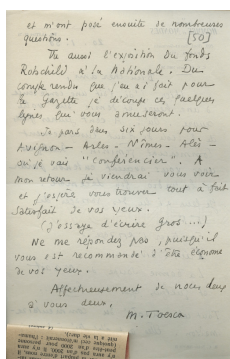 et m'ont posé ensuite de nombreuses
questions. [50]
Vu aussi l'exposition du fonds
Rothschild à la Nationale. Du
compte rendu que j'en ai fait pour
la Gazette je découpe ces quelques
lignes qui vous amuseront.
Je pars dans six jours pour
Avignon - Arles - Nîmes - Alès -
où je vais "conférencier". A
mon retour je viendrai vous voir
et j'espère vous trouver tout à fait
satisfait de vos yeux.
(J'essaye d'écrire gros...)
Ne me répondez pas, puisqu'il
vous est recommandé d'être économe
de vos yeux.
Affectueusement de nous deux
à vous deux.
M. Toesca